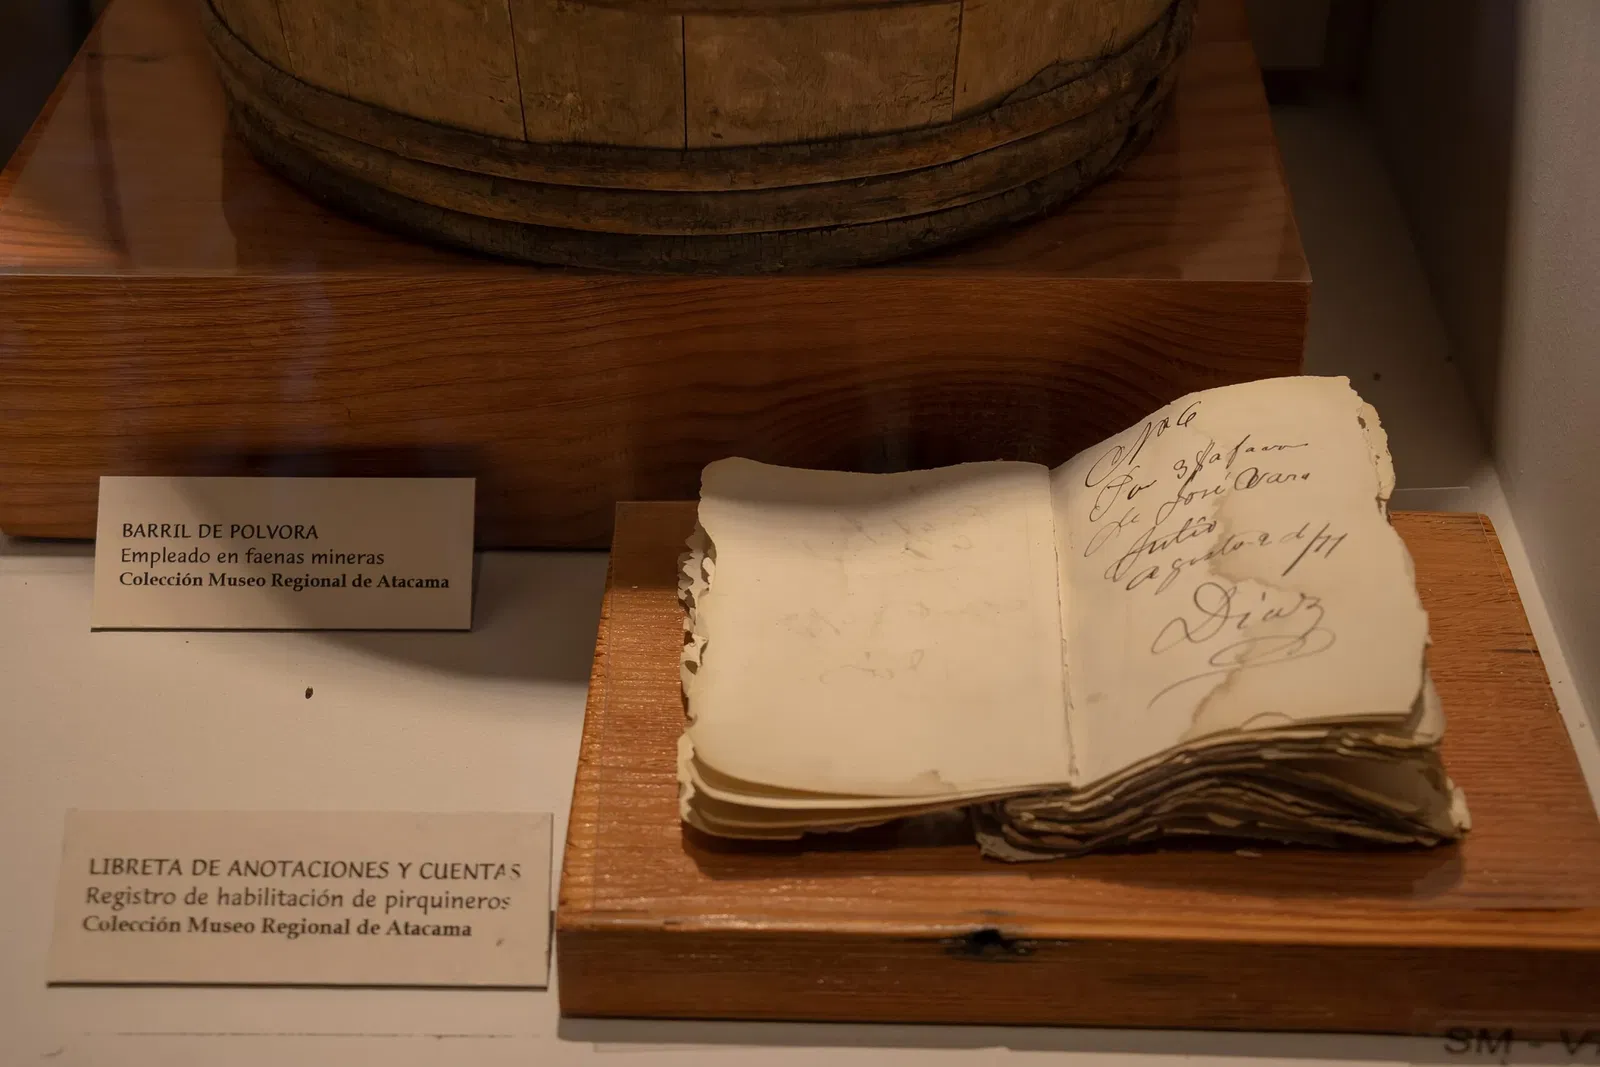 BARRIL DE POLVORA
Empleado en faenas mineras
Colección Museo Regional de Atacama
LIBRETA DE ANOTACIONES Y CUENTAS
Registro de habilitación de pirquineros
Colección Museo Regional de Atacama
No 6
Por 3
de José
Julio
Agosto 2 d/71
Diaz
SM - V